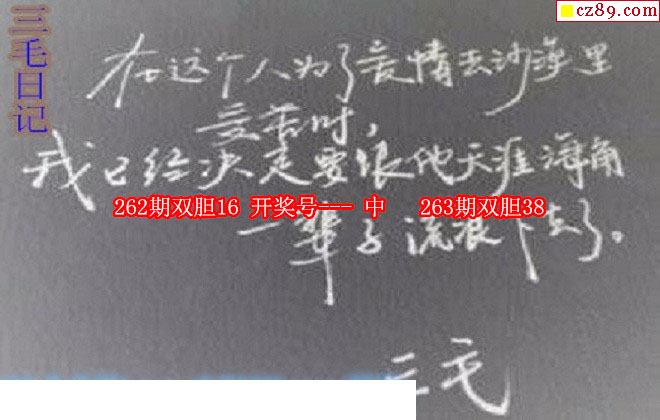 cz89.com
三毛日记
在这个人为了爱情去沙漠里
受苦时，
我已经决定要跟他天涯海角
262期双胆16 开奖号--- 中 263期双胆38
一辈子流浪下去了。
三毛